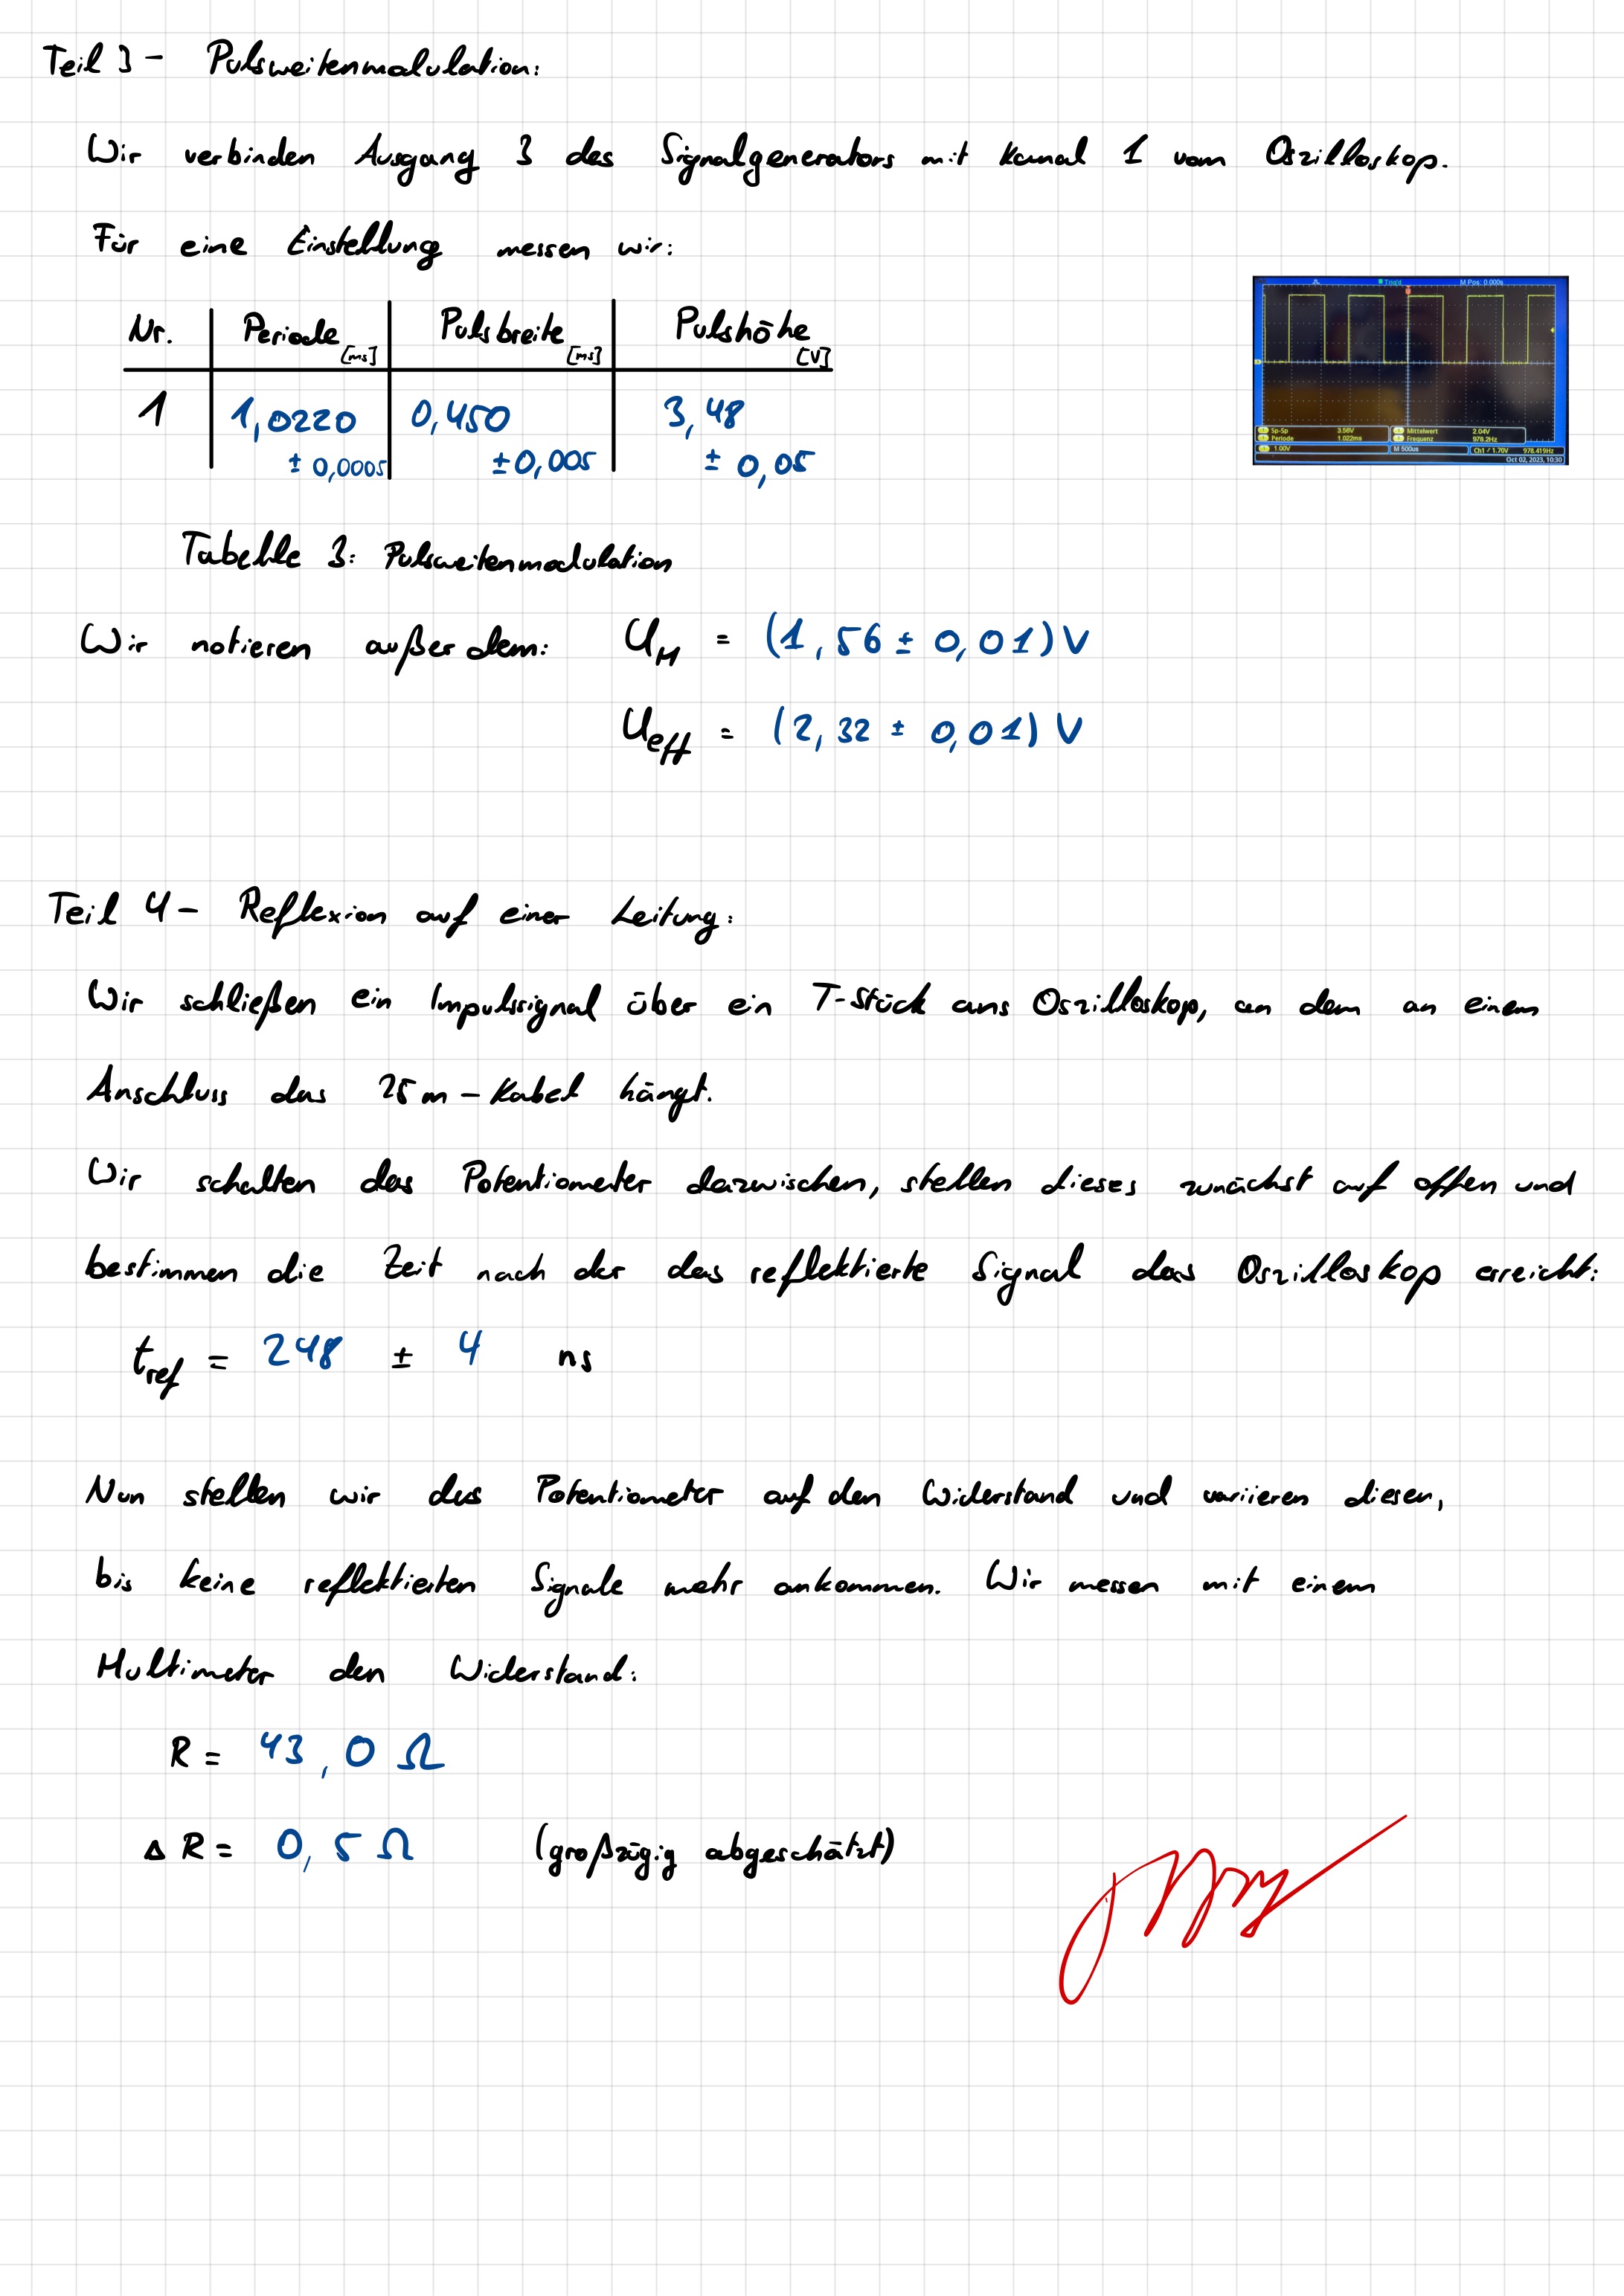 Teil 3 - Pulsweitenmodulation:
Wir verbinden Ausgang 3 des Signalgenerators mit Kanal 1 vom Oszilloskop.
Für eine Einstellung messen wir:
Nr. Periode [ms] Pulsbreite [ms] Pulshöhe [V]
1 1,0220 ± 0,0005 0,450 ± 0,005 3,48 ± 0,05
Trig'd M Pos: 0.000s
Sp-Sp 3.56V Mittelwert 2.04V
Periode 1.022ms Frequenz 978.2Hz
1.00V M 500us Ch1 / 1.70V 978.419Hz
Oct 02, 2023, 10:30
Tabelle 3: Pulsweitenmodulation
Wir notieren außerdem: U_M = (1,56 ± 0,01) V
U_eff = (2,32 ± 0,01) V
Teil 4 - Reflexion auf einer Leitung:
Wir schließen ein Impulssignal über ein T-Stück ans Oszilloskop, an dem an einem
Anschluss das 25 m - Kabel hängt.
Wir schalten das Potentiometer dazwischen, stellen dieses zunächst auf offen und
bestimmen die Zeit nach der das reflektierte Signal das Oszilloskop erreicht:
t_ref = 248 ± 4 ns
Nun stellen wir das Potentiometer auf den Widerstand und variieren diesen,
bis keine reflektierten Signale mehr ankommen. Wir messen mit einem
Multimeter den Widerstand:
R = 43,0 Ω
Δ R = 0,5 Ω (großzügig abgeschätzt)